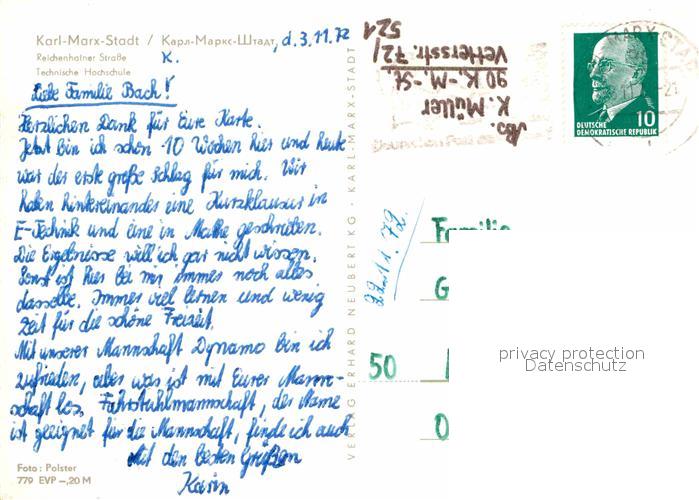 Karl-Marx-Stadt / Карл-Маркс-Штадт, d. 3.11.72
Reichenhainer Straße K.
Technische Hochschule
Liebe Familie Bach!
Herzlichen Dank für Eure Karte.
Jetzt bin ich schon 10 Wochen hier und heute
war der erste große Schlag für mich. Wir
haben hintereinander eine Kurzklausur in
E-Technik und eine in Mathe geschrieben.
Die Ergebnisse will ich gar nicht wissen.
Sonst ist hier bei mir immer noch alles
dasselbe. Immer viel lernen und wenig
Zeit für die schöne Freizeit.
Mit unserer Mannschaft Dynamo bin ich
zufrieden, aber was ist mit Eurer Mann-
schaft los, Fahrstuhlmannschaft, der Name
ist geeignet für die Mannschaft, finde ich auch
Mit den besten Grüßen
Karin
Foto: Polster
779 EVP -,20 M
VERLAG ERHARD NEUBERT KG · KARL-MARX-STADT
Abs.
K. Müller
90 K.-M.-St.
Vettersstr. 72/
521
10
DEUTSCHE
DEMOKRATISCHE REPUBLIK
Familie
G
50
O
privacy protection
Datenschutz